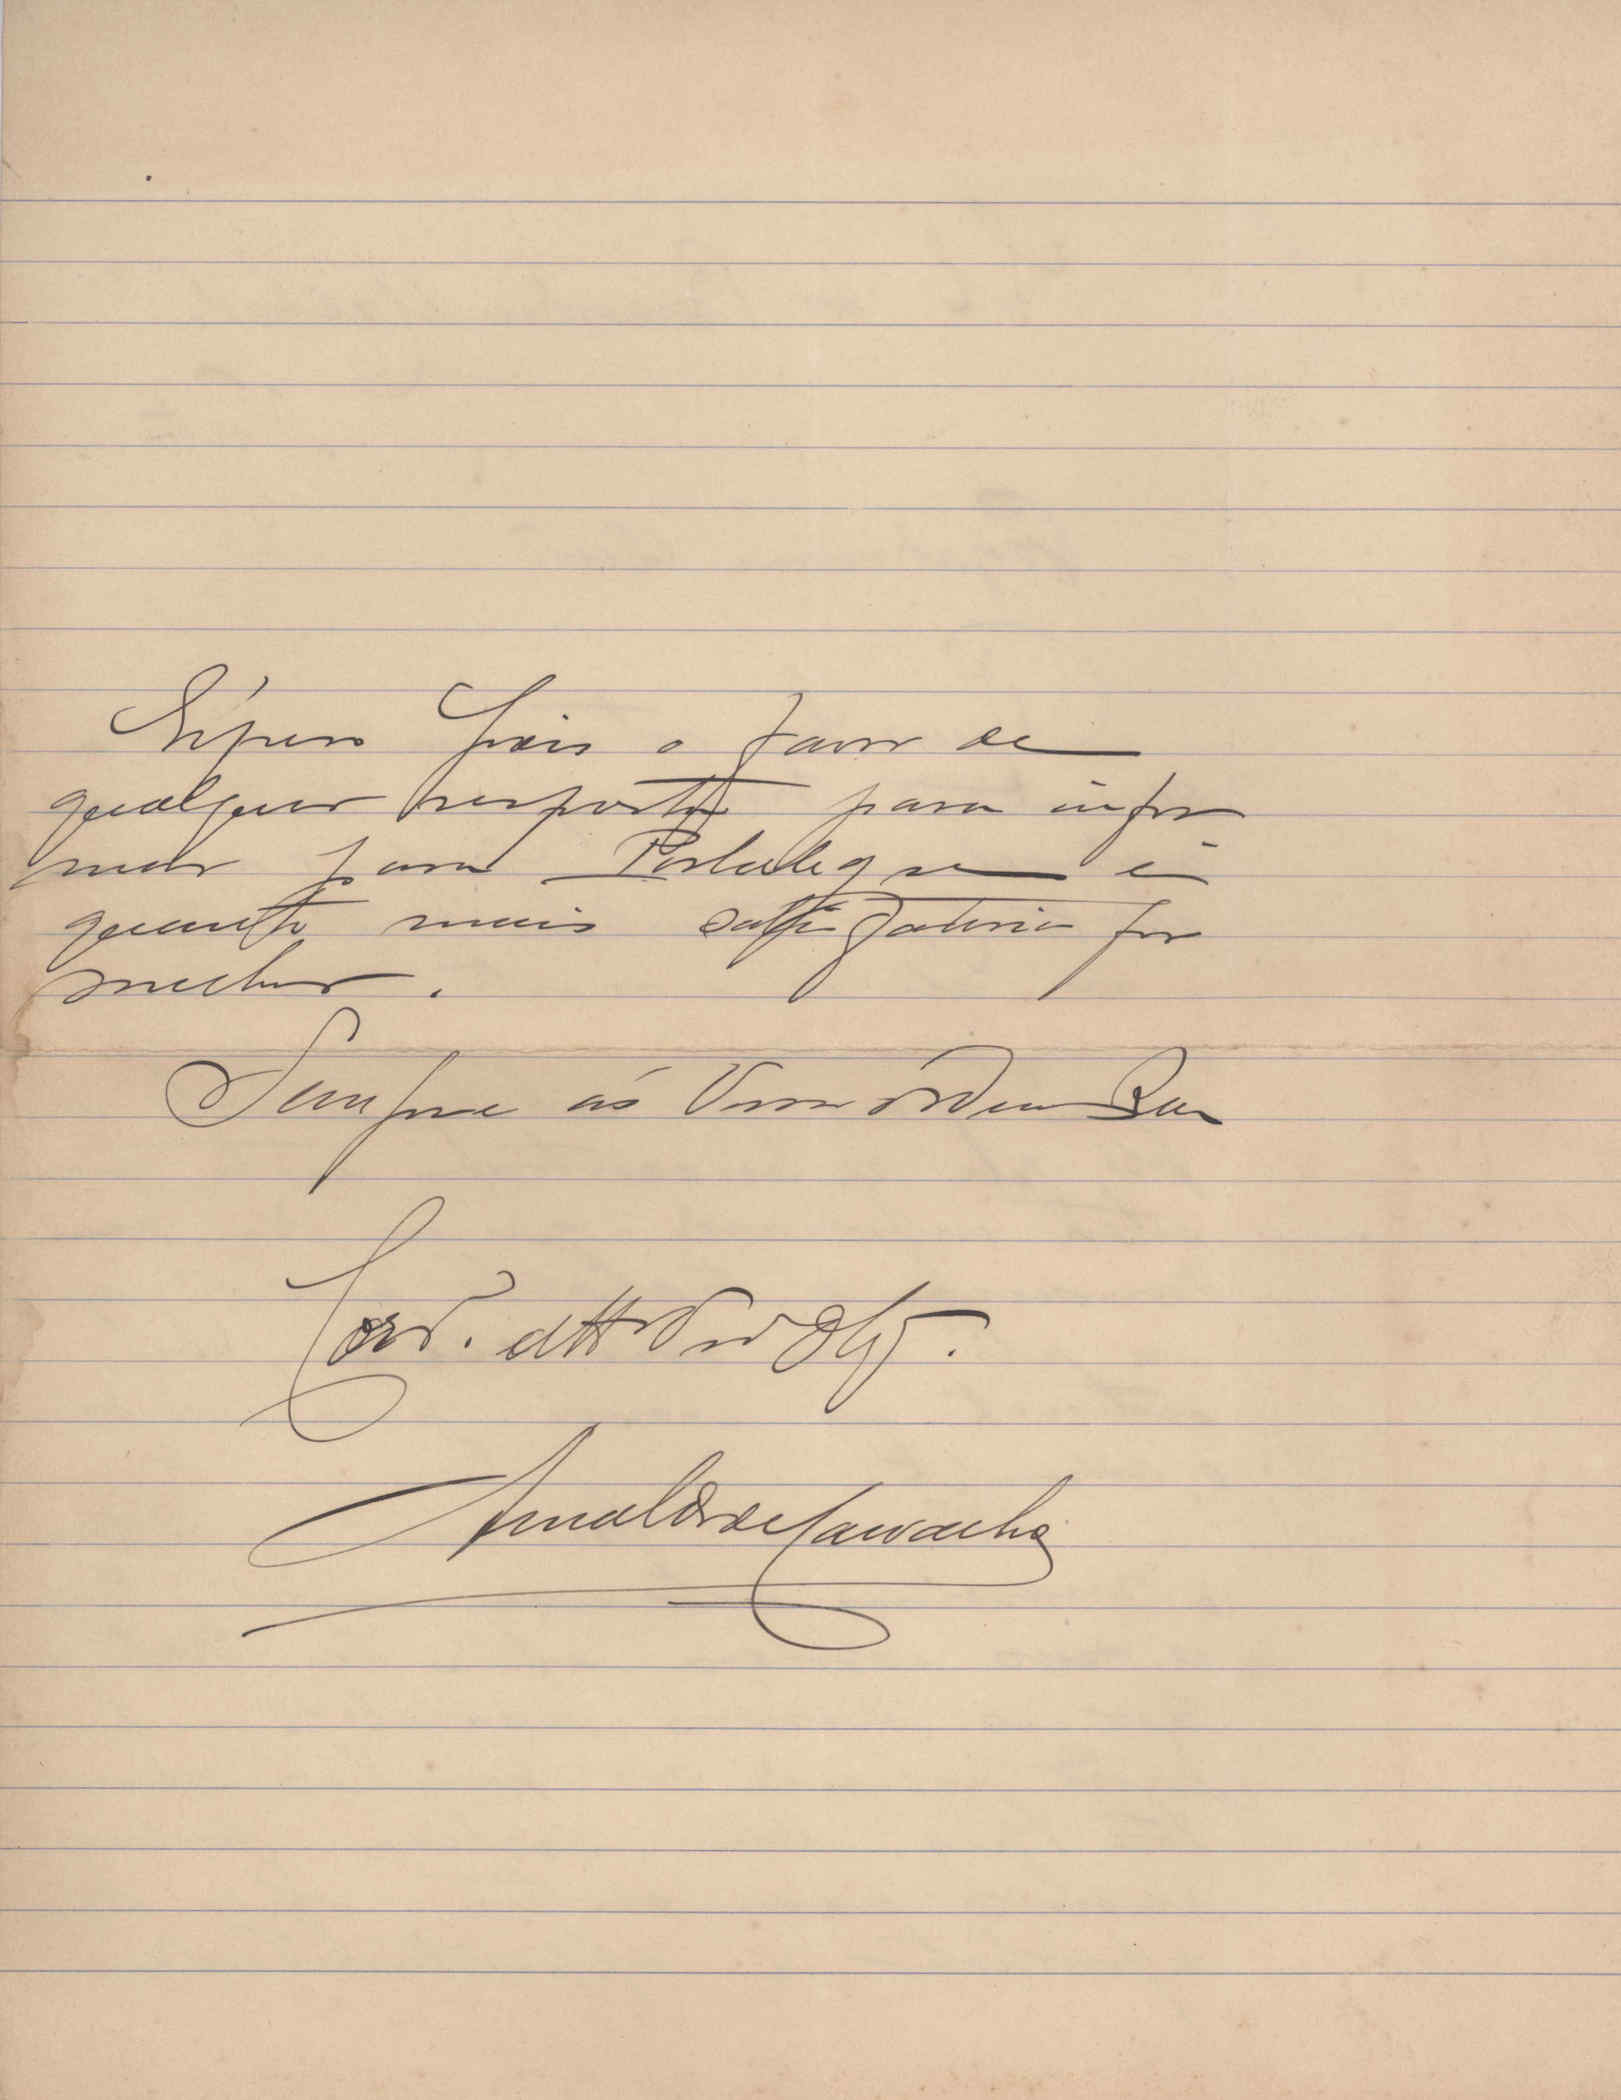 Espero pois o favor de
qualquer resposta para infor
mar para Portalegre e
quanto mais satisfatoria for
melhor.
Sempre ás Vossas ordens
Cord. att Vnr Obg.
Arnaldo de Carvalho